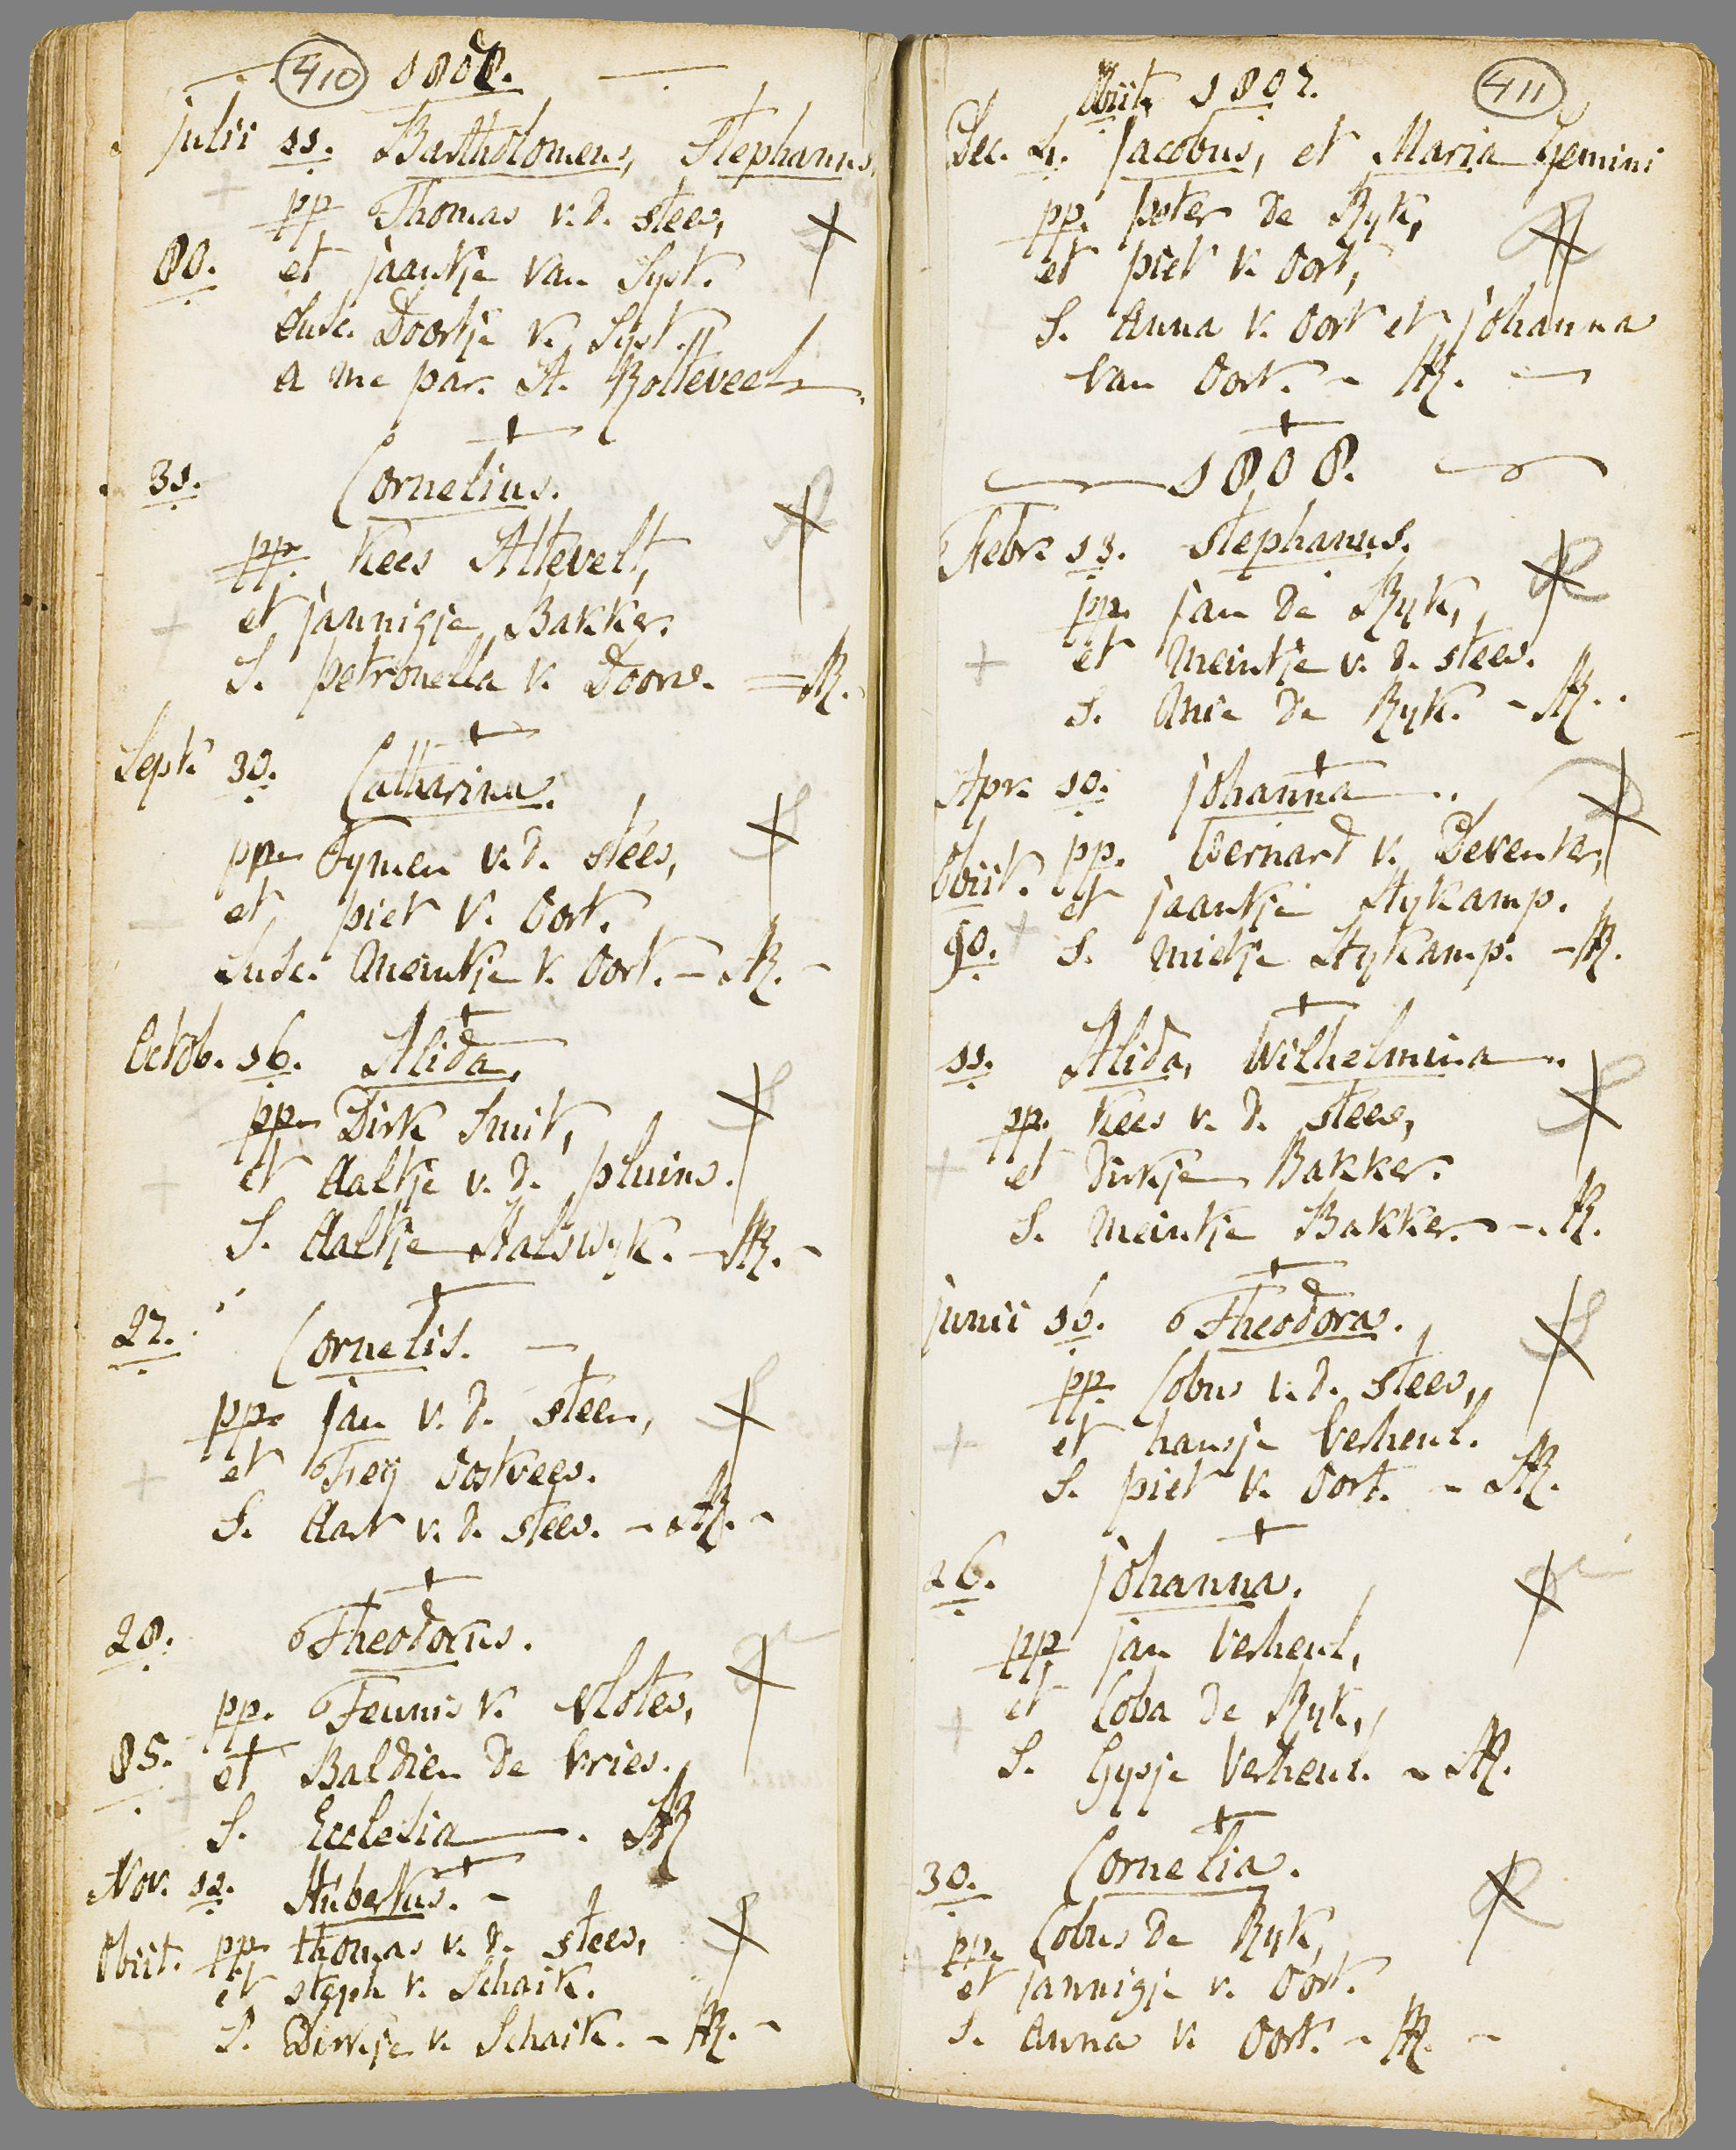 410 1807.
Julii 11. Bartholomeus, Stephanus,
pp. Thomas v. d. stees,
80. et jaantje van Syst.
Susc. Doortje v. Syst.
a me par. St. Rotteveel
31. Cornelius.
pp. Kees Altevelt,
et jannigje Bakker.
S. petronella v. Doorn. = AR.
Sept. 30. Catharina.
pp. Tymen v. d. stees,
et piet v. Oort.
Susc. Meintje v. Oort. - AR. -
Octob. 16. Alida.
pp. Dirk Smit,
et Aaltje v. d. pluims.
S. Aaltje Halswyk. - AR. -
27. Cornelis.
pp. jan v. d. steen,
et Trey Oostvees.
S. Aart v. d. stees. - AR. -
28. Theodorus.
pp. Teunis v. Vlotes,
85. et Baldien de Vries.
S. Ecclesia. AR
Nov. 12. Hubertus. -
Obiit. pp. thomas v. d. stees,
et steph v. Schaik.
S. Dirkje v. Schaik. - AR. -
Obiit 1807. 411
Dec. 4. Jacobus, et Maria Gemini
pp. peter de Ryk,
et piet v. Oort,
S. Anna v. Oort et johanna
van Oort. - AR.
1808.
Febr. 13. Stephanus.
pp. jan de Ryk,
et Meintje v. d. stees.
S. Anie de Ryk. - AR.
Apr. 10. johanna
Obiit. pp. Bernard v. Deventer,
et jaantje Stykamp.
90. S. mietje Stykamp. - AR.
11. Alida, Wilhelmina
pp. Kees v. d. stees,
et Dirkje Bakker.
S. Meintje Bakker. - AR.
junii 16. Theodora.
pp. Cobus v. d. stees,
et hansje Verheul.
S. piet v. Oort. - AR.
26. johanna.
pp. jan Verheul,
et Coba de Ryk,
S. Gysje Verheul. - AR.
30. Cornelia.
pp. Cobus de Ryk,
et jannigje v. Oort.
S. Anna v. Oort. - AR. -